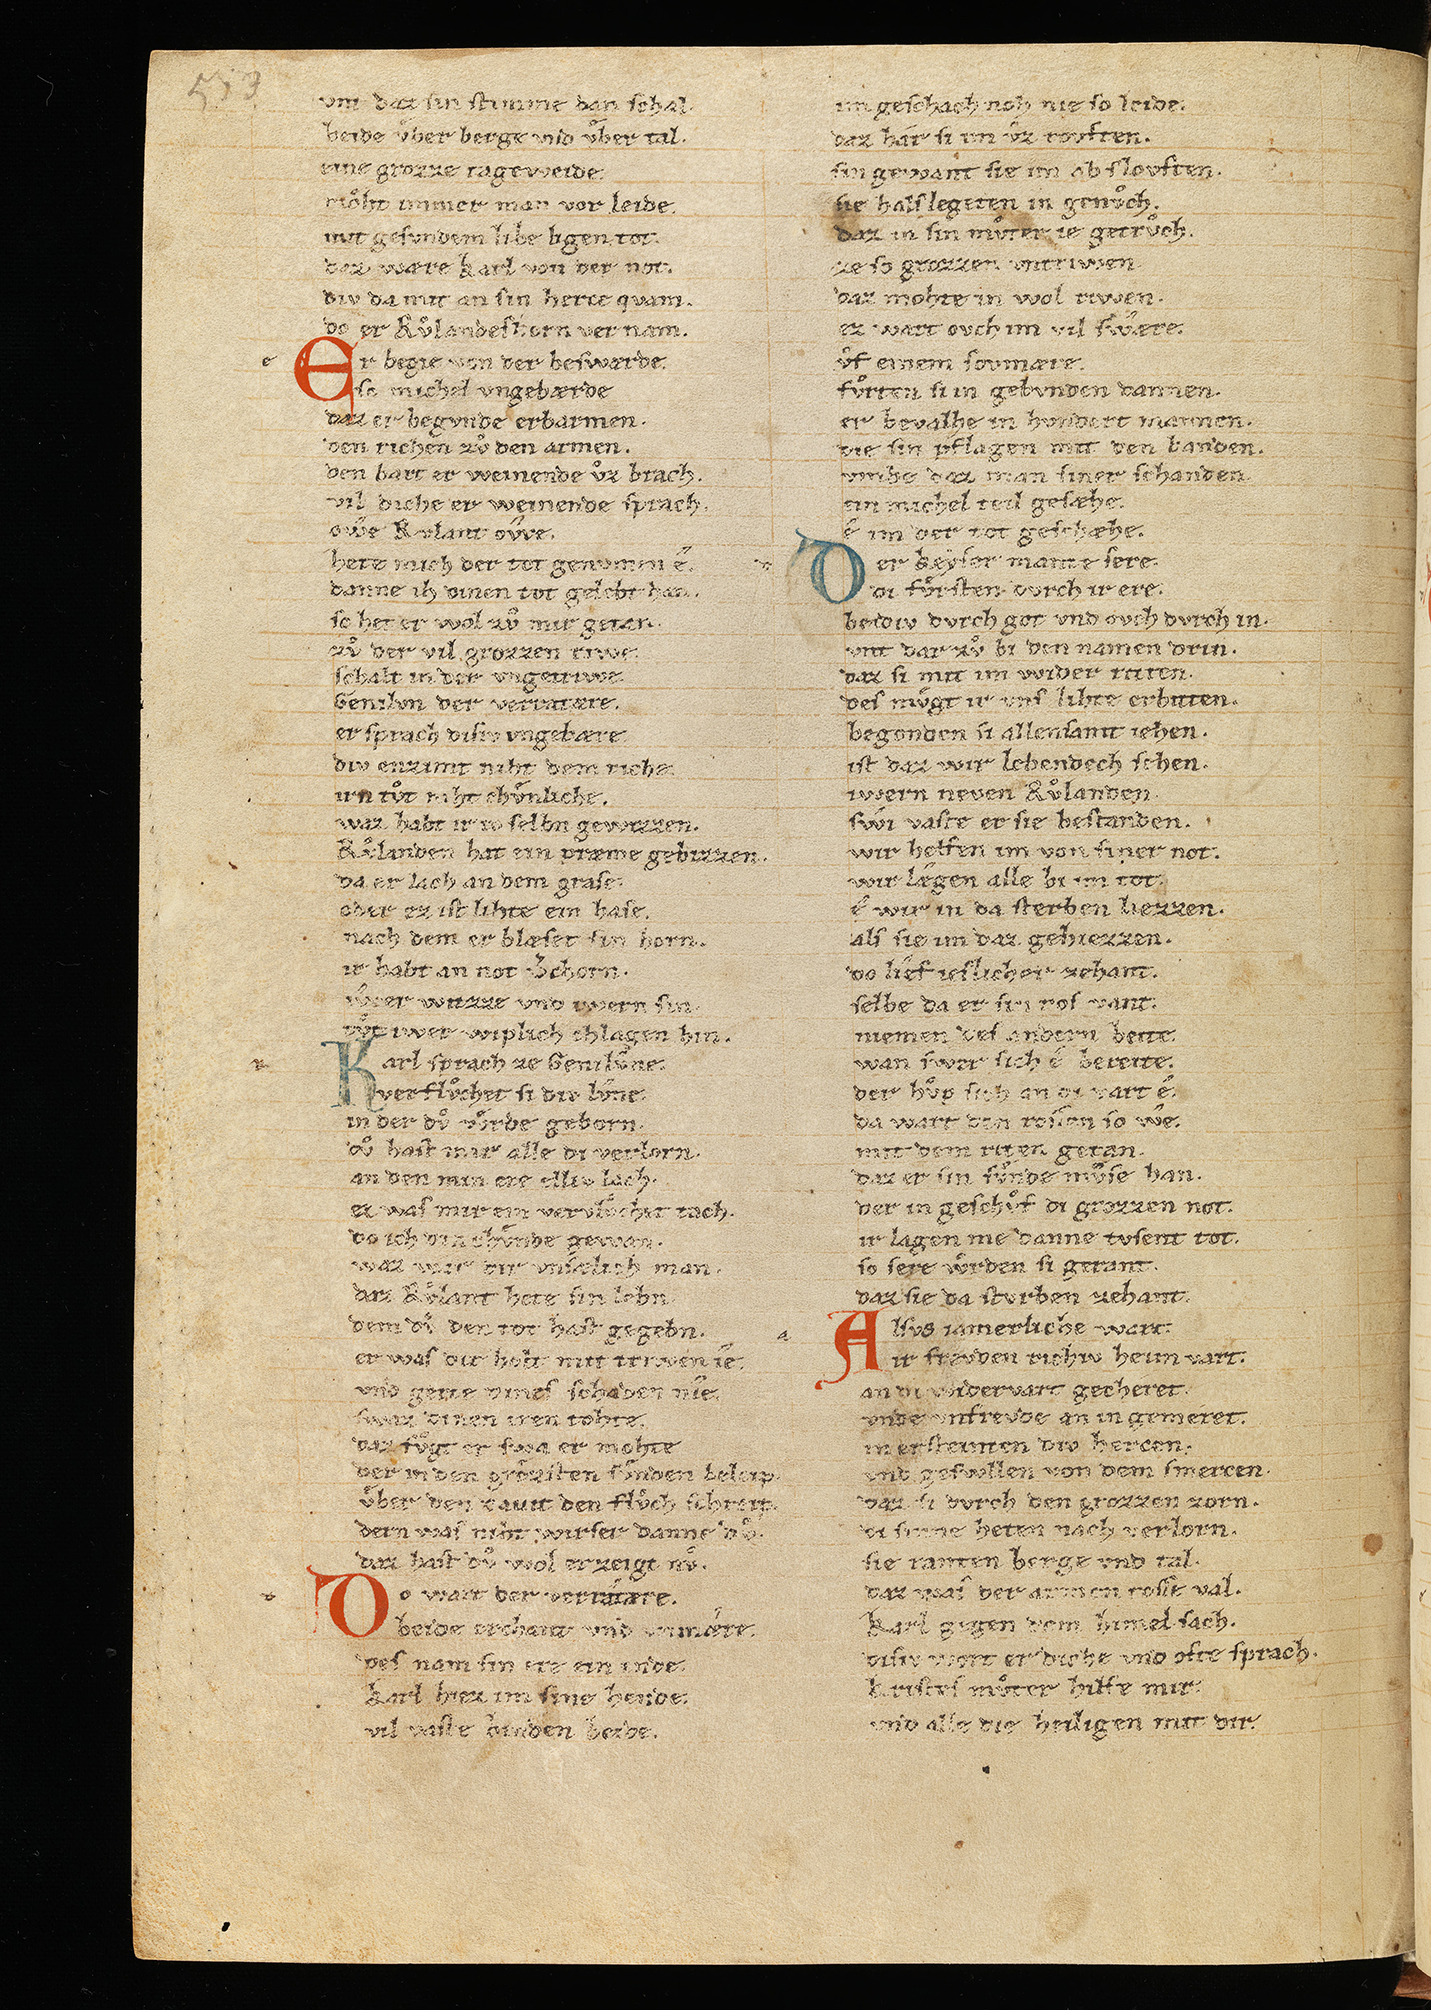 513
vm daz sin stimme dan schal.
beide vͦber berge vnd vͦber tal.
eine grozze tageweide.
moͤht immer man vor leide.
mit gesvndem libe ligen tot.
daz wære karl von der not.
div da mit an sin herce quam.
do er Rvͦlandes horn ver nam.
Er begie von der beswærde.
so michel vngebærde
daz er begvnde erbarmen.
den richen zvͦ den armen.
den bart er weinende vͦz brach.
vil diche er weinende sprach.
owê Rvlant ovve.
hete mich der tot genvmen ê.
danne ih dinen tot gelebt han.
so het er wol zvͦ mir getan.
zvͦ der vil grozzen riwe.
schalt in der vngetriwe
Genilvn der verratære.
er sprach disiv vngebære
div enzimt niht dem riche.
irn tvͦt niht chvͤnliche.
waz habt ir iv selbn gewizzen.
Rvͦlanden hat ein præme gebizzen.
da er lach an dem grase.
oder ez ist lihte ein hase.
nach dem er blæset sin horn.
ir habt an not vͦchorn.
iwer wizze vnd iwern sin
tvͦt iwer wiplich chlagen hin.
Karl sprach ze Genilvͦne.
verflvͦchet si div lvͦne.
in der dvͦ wͦrde geborn.
dvͦ hast mir alle di verlorn.
an den min ere elliv lach.
ez was mir ein vervlvͦchet tach.
do ich din chvͤnde gewan.
waz war dir vnsælich man.
daz Rvͦlant hete sin lebn
dem dvͦ den tot hast gegebn.
er was dir holt mit triwen ie.
vnd gerte dines schaden nie.
swaz dinen eren tohte.
daz fvͦgt er swa er mohte
der in den grozisten svͤnden beleip.
vͦber den dauit den flvͦch schreip.
dern was niht wirser danne dvͦ.
daz hast dvͦ wol erzeigt nvͦ.
Do wart der verratære.
beide erchant vnd vnmære.
des nam sin ere ein ende.
karl hiez im sine hende.
vil vaste binden beide.
im geschach noh nie so leide.
daz hâr si im vͦz rovften.
sin gewant sie im ab slovften.
sie halslegeten in genvͦch.
daz in sin mvͦter ie getrvͦch.
ze so grozzen vntriwen
daz mohte in wol riwen.
ez wart ovch im vil swære.
vͦf einem sovmære.
fvͦrten si in gebvnden dannen.
er bevalhe in hvndert mannen.
die sin pflagen mit den banden.
vmbe daz man siner schanden
ein michel teil gesæhe.
ê im der tot geschæhe.
Der keyser mante sere
di fvͤrsten dvrch ir ere.
beidiv dvrch got vnd ovch dvrch in.
vnt dar zvͦ bi den namen drin.
daz si mit im wider riten.
des mvͤgt ir vns lihte erbiten.
begonden si allensamt iehen.
ist daz wir lebendech sehen.
iwern neven Rvͦlanden.
swi vaste er sie bestanden.
wir helfen im von siner not.
wir lægen alle bi im tot.
ê wir in da sterben liezzen.
als sie im daz gehiezzen.
do lief ieslicher zehant.
selbe da er sin ros vant.
niemen des andern beite.
wan swer sich ê bereite.
der hvͦp sich an di vart ê.
da wart den rossen so wê.
mit dem riten getan.
daz er sin svͤnde mvͤse han.
der in geschvͦf di grozzen not.
ir lagen nie danne tvsent tot.
so sere wͦrden si gerant.
daz sie da stvrben zehant.
Alsvs iamerliche wart.
ir frevden richiv heim vart.
an di widervart gecheret.
vnde vnfrevde an in gemeret.
in ersteinten div hercen.
vnd geswllen von dem smercen.
daz si dvrch den grozzen zorn.
di sinne heten nach verlorn.
sie ranten berge vnd tal.
daz was der armen rosse val.
Karl gigen dem himel sach.
disiv wort er diche vnd ofte sprach.
kristes mvͦter hilfe mir.
vnd alle die heiligen mit dir.